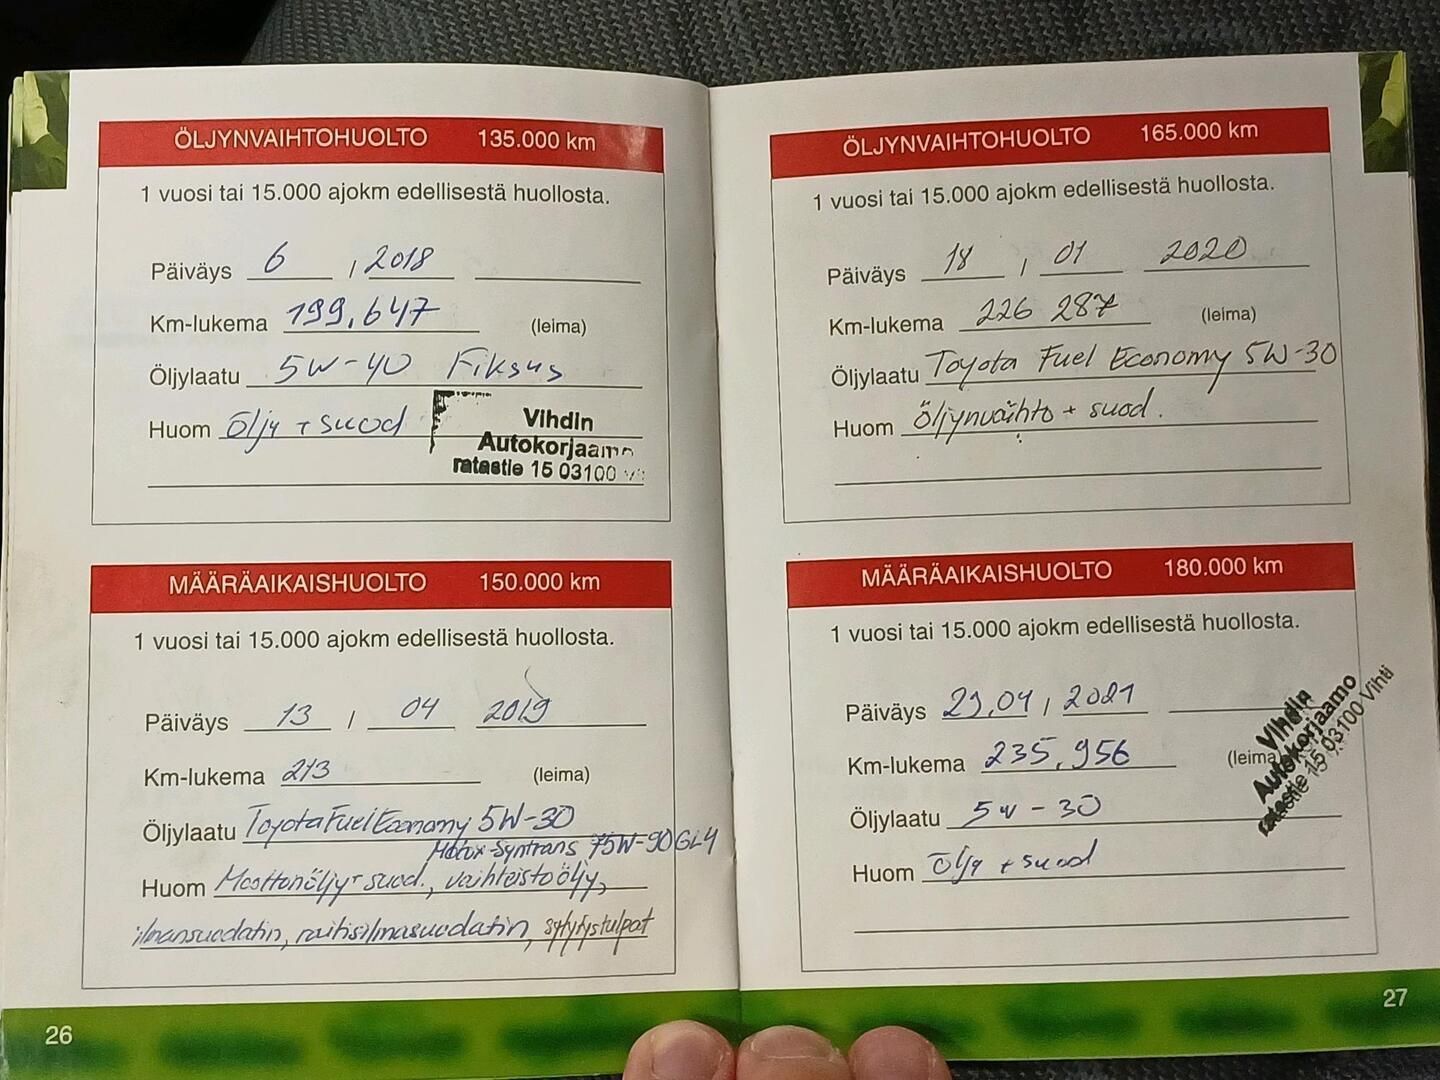 ÖLJYNVAIHTOHUOLTO 135.000 km
1 vuosi tai 15.000 ajokm edellisestä huollosta.
Päiväys 6 / 2018
Km-lukema 199.647 (leima)
Öljylaatu 5W-40 Fiksus
Huom Öljy + suod
Vihdin
Autokorjaamo
ratastie 15 03100
MÄÄRÄAIKAISHUOLTO 150.000 km
1 vuosi tai 15.000 ajokm edellisestä huollosta.
Päiväys 13 / 04 2019
Km-lukema 213 (leima)
Öljylaatu Toyota Fuel Economy 5W-30
Motox-Syntrans 75W-90 GL4
Huom Moottoriöljy + suod., vaihteistoöljy,
ilmansuodatin, raitisilmasuodatin, sytytystulpat
26
ÖLJYNVAIHTOHUOLTO 165.000 km
1 vuosi tai 15.000 ajokm edellisestä huollosta.
Päiväys 18 / 01 2020
Km-lukema 226 287 (leima)
Öljylaatu Toyota Fuel Economy 5W-30
Huom Öljynvaihto + suod.
MÄÄRÄAIKAISHUOLTO 180.000 km
1 vuosi tai 15.000 ajokm edellisestä huollosta.
Päiväys 29.04 / 2021
Km-lukema 235.956 (leima)
Öljylaatu 5W-30
Huom Öljy + suod
Vihdin
Autokorjaamo
ratastie 15 03100 Vihti
27